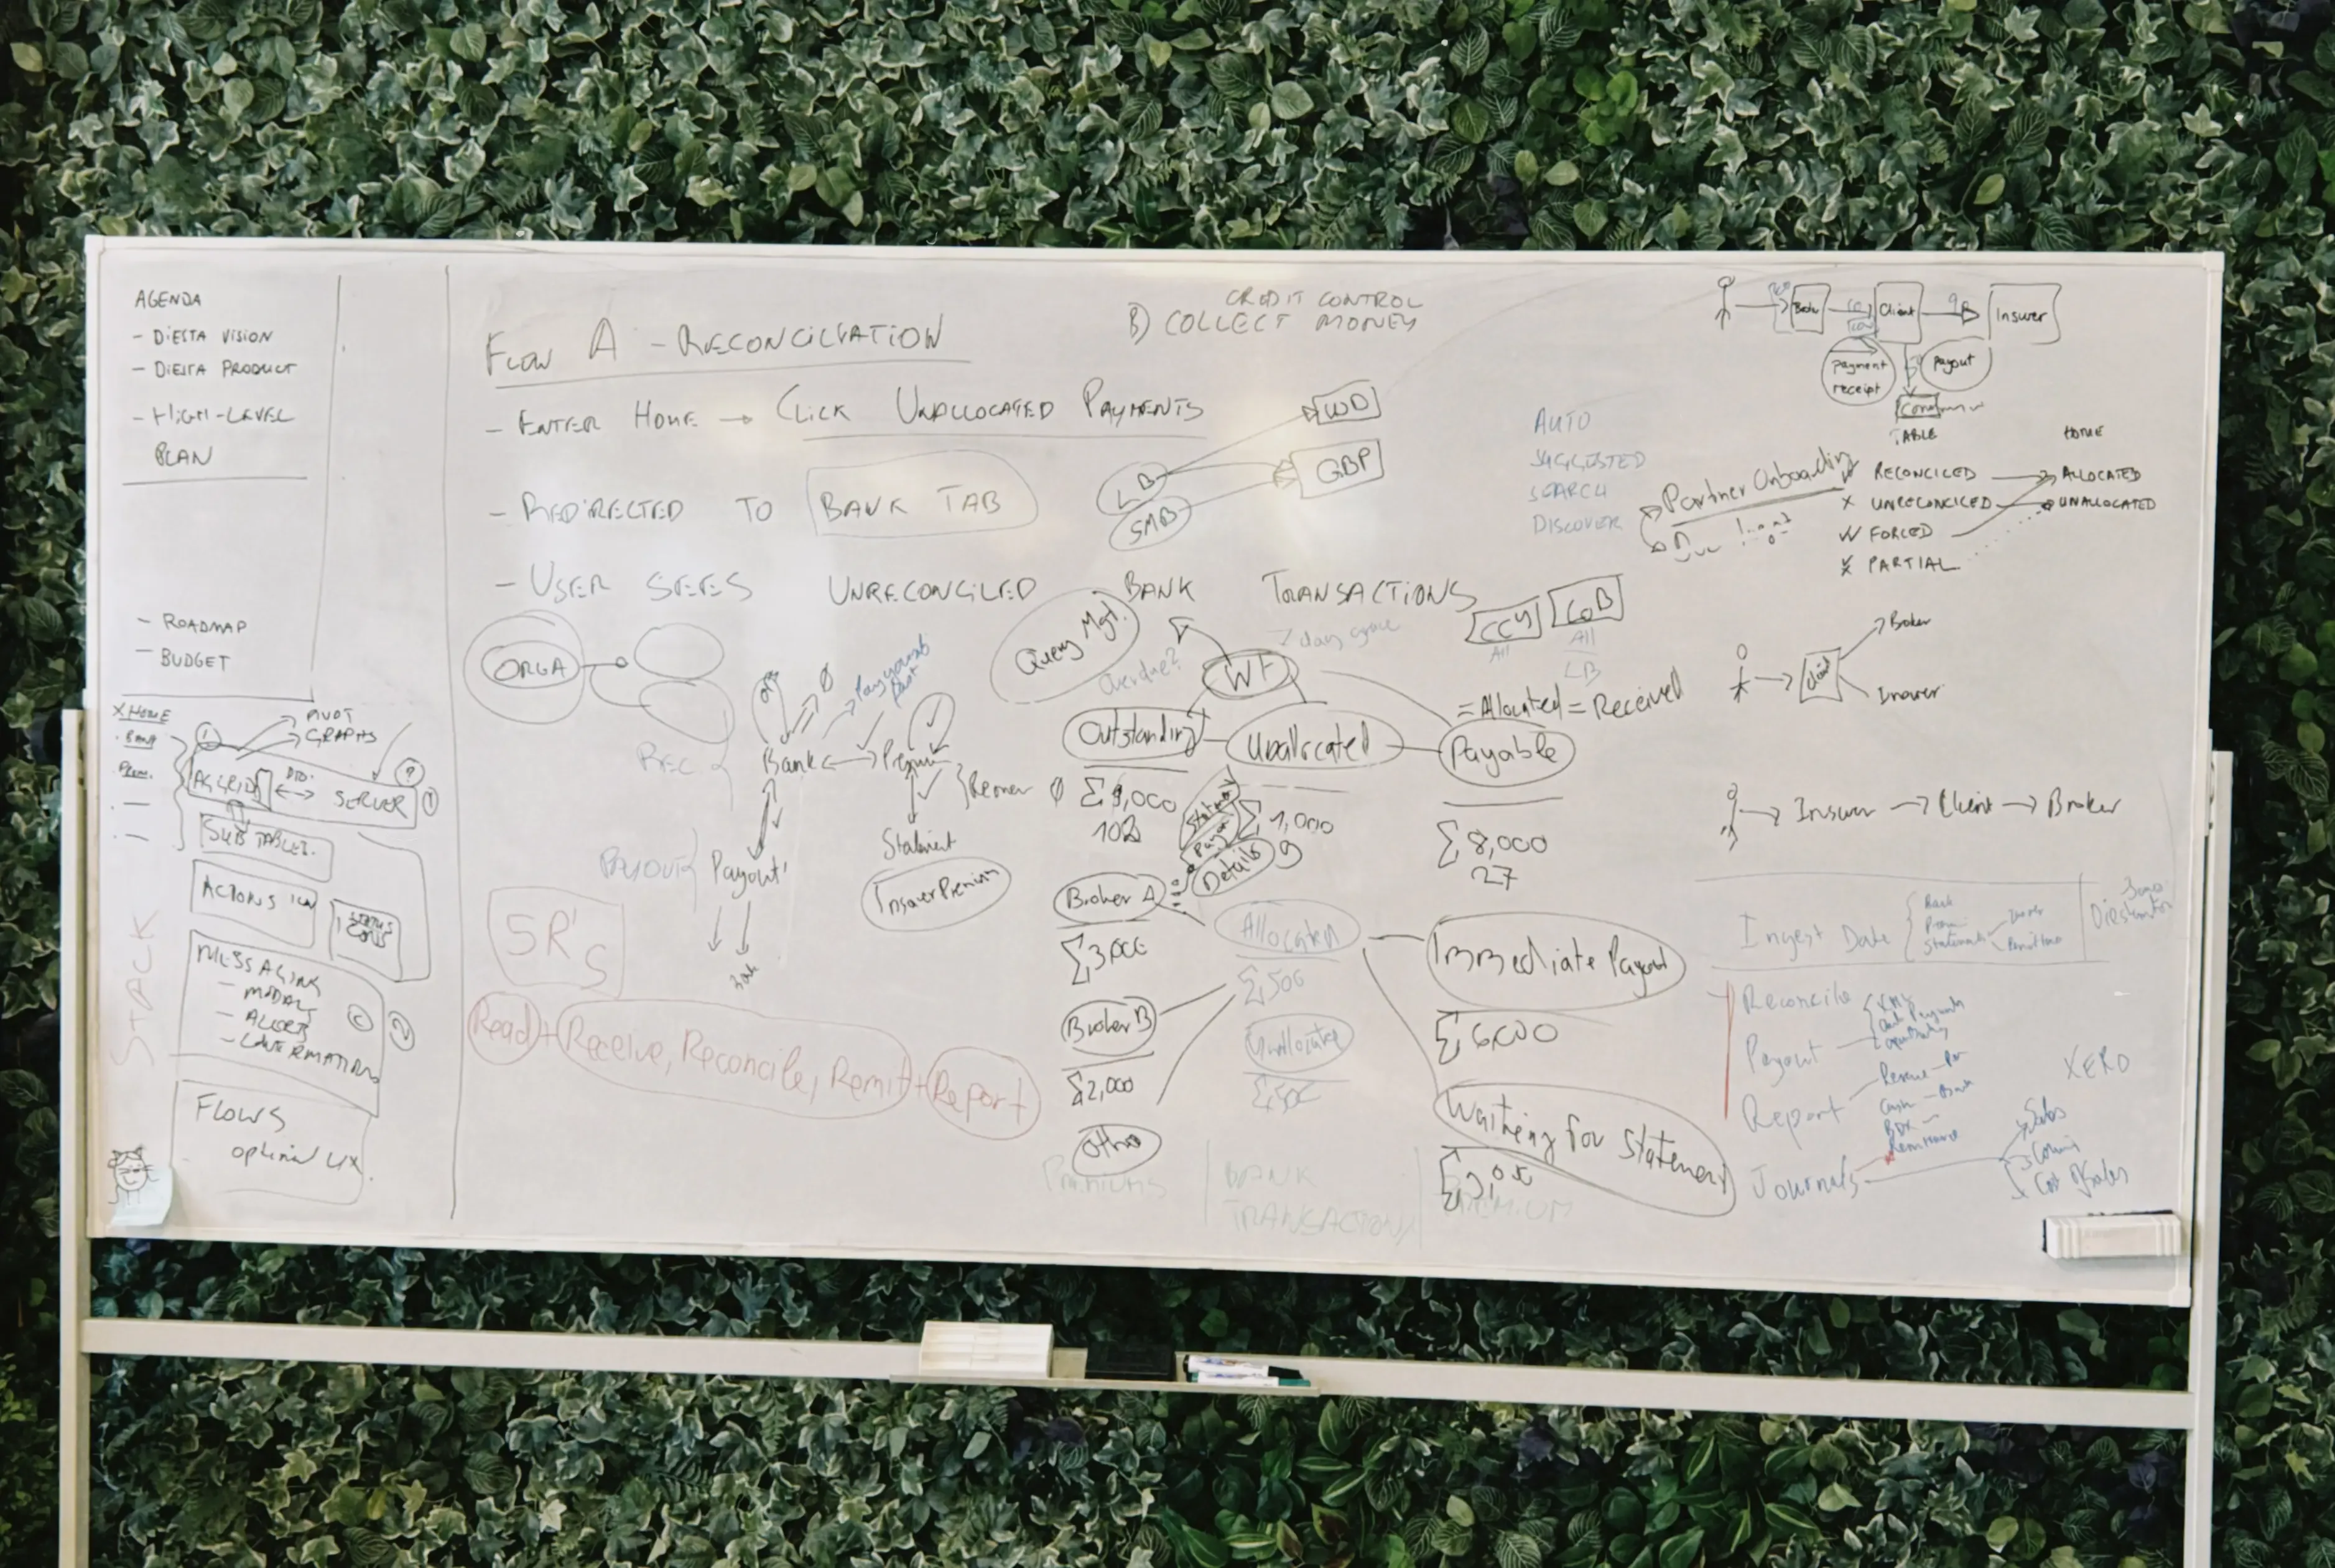 AGENDA
- DIESTA VISION
- DIESTA PRODUCT
- HIGH-LEVEL
PLAN
- ROADMAP
- BUDGET
X HOME
PIVOT
GRAPHS
AGGRID
SERVER
SUB TABLES.
ACTIONS
STATUS
ICONS
MESSAGING
- MODALS
- ALERTS
- CONFIRMATIONS
FLOWS
STACK
FLOW A - RECONCILIATION
- ENTER HOME → CLICK UNALLOCATED PAYMENTS
- REDIRECTED TO BANK TAB
- USER SEES UNRECONCILED BANK TRANSACTIONS
CREDIT CONTROL
B) COLLECT MONEY
LB
SMB
GBP
AUTO
SUGGESTED
SEARCH
DISCOVER
Partner Onboarding
Broker
Client
Insurer
payment
receipt
payout
TABLE
HOME
✓ RECONCILED → ALLOCATED
X UNRECONCILED → UNALLOCATED
FORCED
PARTIAL
ORGA
REC
Bank ↔
Payout
PAYOUT
Statement
Insurer Premium
5R's
Read + Receive, Reconcile, Remit + Report
Query Mgt.
Overdue?
7 day grace
CCY
All
COB
All
LB
= Allocated = Received
Outstanding
Unallocated
Payable
Σ 1,000
Σ 8,000
27
Details 9
Broker A
Σ 3,000
Broker B
Σ 2,000
Other
Allocated
Σ 500
Unallocated
Σ 500
Immediate Payout
Σ 6,000
Waiting for Statement
PREMIUMS
BANK
TRANSACTIONS
PREMIUM
Client
Broker
Insurer
→ Insurer → Client → Broker
Ingest Data
Bank
Statements
Reconcile
Payout
Report
Cash - Bank
BDX
Remittance
Journals
XERO
Sales
Cost of Sales